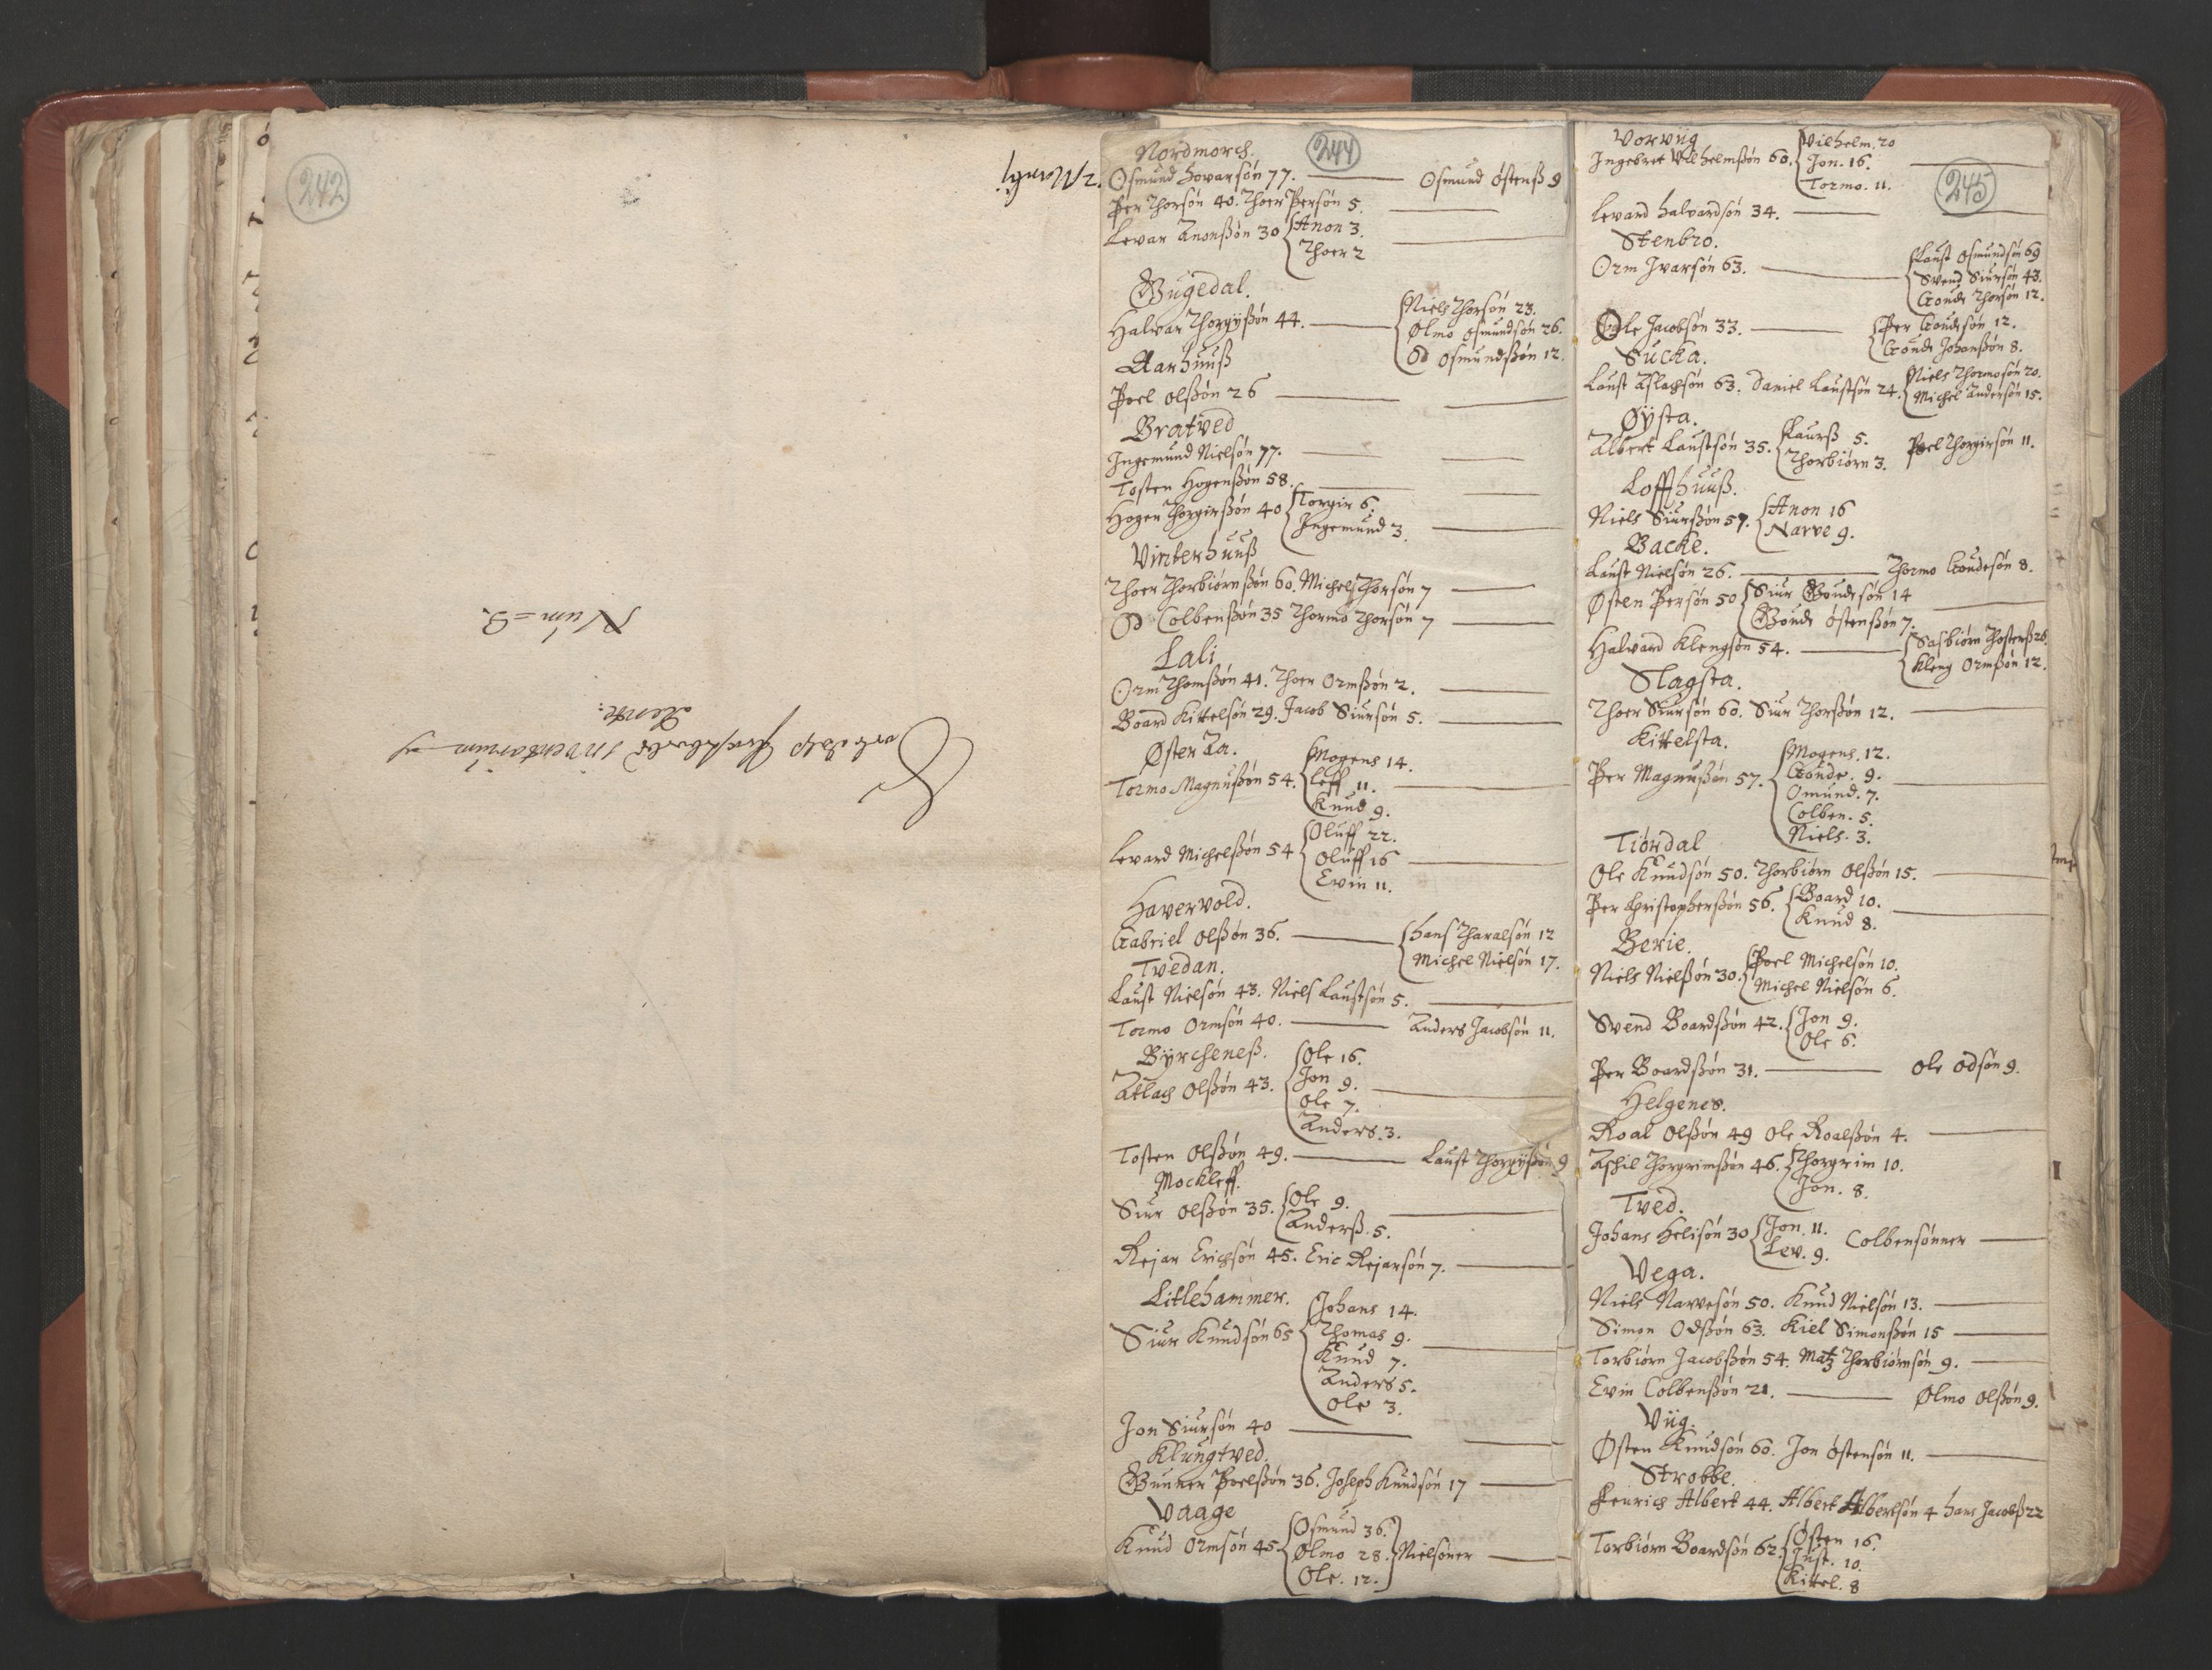 242
Num = 3.
Inventarium
244
Nordmorch.
Osmund Hovarsøn 77. Osmund Østenß 9
Per Thorsøn 40. Thoer Persøn 5.
Levar Anonßøn 30 Anon 3.
Thoer 2
Gugedal.
Halvar Thorgyßøn 44. Niels Thorsøn 23.
Ølmo Osmundsøn 26.
Od Osmundßøn 12.
Aarhuuß
Poel Olßøn 26
Bratved
Ingemund Nielsøn 77.
Tosten Hogenßøn 58.
Hogen Thorgirßøn 40 Torgir 6.
Ingemund 3.
Vinterhuuß
Thoer Thorbiørnßøn 60. Michel Thorsøn 7
Od Colbenßøn 35 Thormo Thorsøn 7
Lali
Orm Thomßøn 41. Thoer Ormßøn 2.
Board Kittelsøn 29. Jacob Siursøn 5.
Øster Aa.
Tormo Magnußøn 54. Mogens 14.
Leff 11.
Knud 9.
Levard Michelßøn 54 Oluff 22.
Oluff 16
Evin 11.
Havervold.
Gabriel Olßøn 36. Hans Tharalsøn 12
Michel Nielsøn 17.
Tvedan.
Laust Nielsøn 43. Niels Laustsøn 5.
Tormo Ormsøn 40. Anders Jacobsøn 11.
Byrcheneß.
Atlach Olßøn 43. Ole 16.
Jon 9.
Ole 7.
Anders. 3.
Tosten Olßøn 49. Laust Thorgyßøn 9
Mockleff.
Siur Olßøn 35. Ole 9.
Anderß. 5.
Rejar Erichsøn 45. Eric Rejarsøn 7.
Litlehammer.
Siur Knudsøn 65 Johans 14.
Thomas 9.
Knud 7.
Anders 5.
Ole 3.
Jon Siursøn 40
Klungtved.
Gunner Poelßøn 36. Joseph Knudsøn 17
Vaage
Knud Ormsøn 45. Osmund 36.
Ølmo 28. Nielsøner
Ole. 12.
245
Vorviig
Ingebret Vilhelmßøn 60. Vilhelm. 20
Jon. 16.
Tormo. 11.
Levard Halvardsøn 34.
Stenbro.
Orm Ivarsøn 63. Laust Osmundsøn 69
Svend Siursøn 43.
Goude Thorsøn 12.
Ole Jacobsøn 33. Per Goudesøn 12.
Goude Johanßøn 8.
Sucka.
Laust Aslachsøn 63. Daniel Laustsøn 24. Niels Thormosøn 20.
Michel Andersøn 15.
Øysta.
Albert Laustsøn 35. Laurß 5.
Thorbiørn 3. Poel Thorgirsøn 11.
Loffthuuß.
Niels Siurßøn 57. Anon 16
Narve 9.
Backe.
Laust Nielsøn 26. Thormo Goudesøn 8.
Østen Persøn 50 Siur Goudesøn 14
Goude Østenßøn 7.
Halvard Klengsøn 54.
Kleng Ormßøn 12.
Slagsta.
Thoer Siursøn 60. Siur Thorßøn 12.
Kittelsta.
Per Magnußøn 57. Mogens. 12.
Goude. 9.
Omund. 7.
Colben. 5.
Niels. 3.
Tiørdal
Ole Knudsøn 50. Thorbiørn Olßøn 15.
Per Christopherßøn 56. Board 10.
Knud 8.
Berie.
Niels Nielßøn 30. Poel Michelsøn 10.
Michel Nielsøn 6.
Svend Boardßøn 42. Jon 9.
Ole 6.
Per Boardßøn 31. Ole Odsøn 9.
Helgenes.
Roal Olßøn 49 Ole Roalßøn 4.
Aschil Thorgrimßøn 46. Thorgrim 10.
Jon. 8.
Tved.
Johans Helisøn 30 Jon. 11.
Lev. 9. Colbensønner
Vega.
Niels Narvesøn 50. Knud Nielsøn 13.
Simon Odßøn 63. Kiel Simonßøn 15
Torbiørn Jacobßøn 54. Matz Thorbiørnsøn 9.
Evin Colbenßøn 21. Ølmo Olßøn 9.
Viig.
Østen Knudsøn 60. Jon Østensøn 11.
Strobbe.
Henrich Albert 44. Albert Albertsøn 4 Hans Jacobß 22
Torbiørn Boardsøn 62. Østen 16.
Just. 10.
Kittel. 8